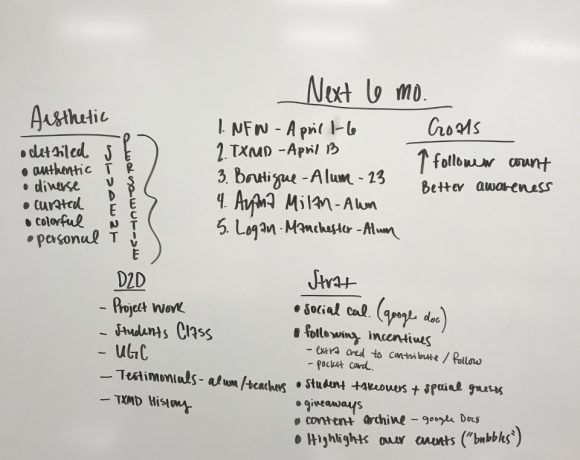 Next 6 mo.
1. NFW - April 1-6
2. TXMD - April 13
3. Boutique - Alum - 23
4. Milan - Alum
5. Logan. Manchester - Alum
Goals
↑ follower count
Better awareness
Aesthetic
• detailed
• authentic
• diverse
• curated
• colorful
• personal
STUDENT
PERSPECTIVE
D2D
- Project Work
- Students Class
- UGC
- Testimonials - alum/teachers
- TXMD History
Strat
• social cal. (google doc)
• following incentives
- extra cred to contribute / follow
- pocket card.
• student takeovers + special guests
• giveaways
• content archive - google Docs
• Highlights over events ("bubbles")